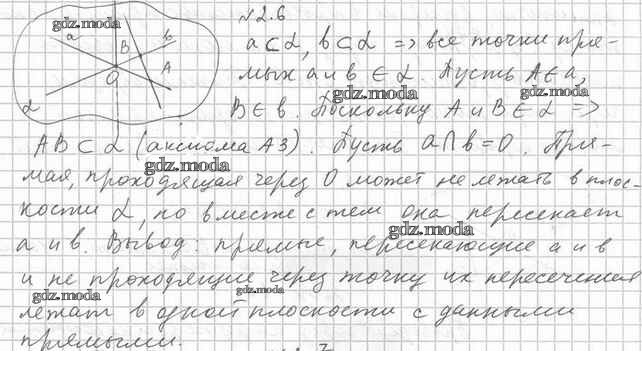 №2.6
gdz.moda
a b
B
A
O
α
a⊂α, b⊂α => все точки пря-
мых a и b ∈ α. Пусть A∈a,
gdz.moda
B∈b. Поскольку A и B∈α =>
AB⊂α (аксиома A3). Пусть a∩b=O. Пря-
gdz.moda
мая, проходящая через O может не лежать в плос-
кости α, но вместе с тем она пересекает
gdz.moda
a и b. Вывод: прямые, пересекающие a и b
и не проходящие через точку их пересечения
gdz.moda gdz.moda
лежат в одной плоскости с данными
прямыми.